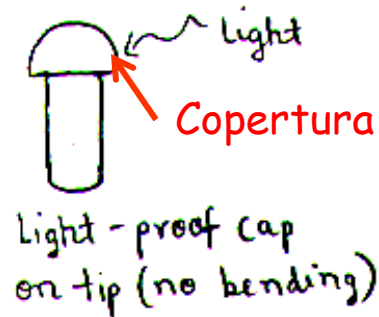 Light
Copertura
Light-proof cap
on tip (no bending)